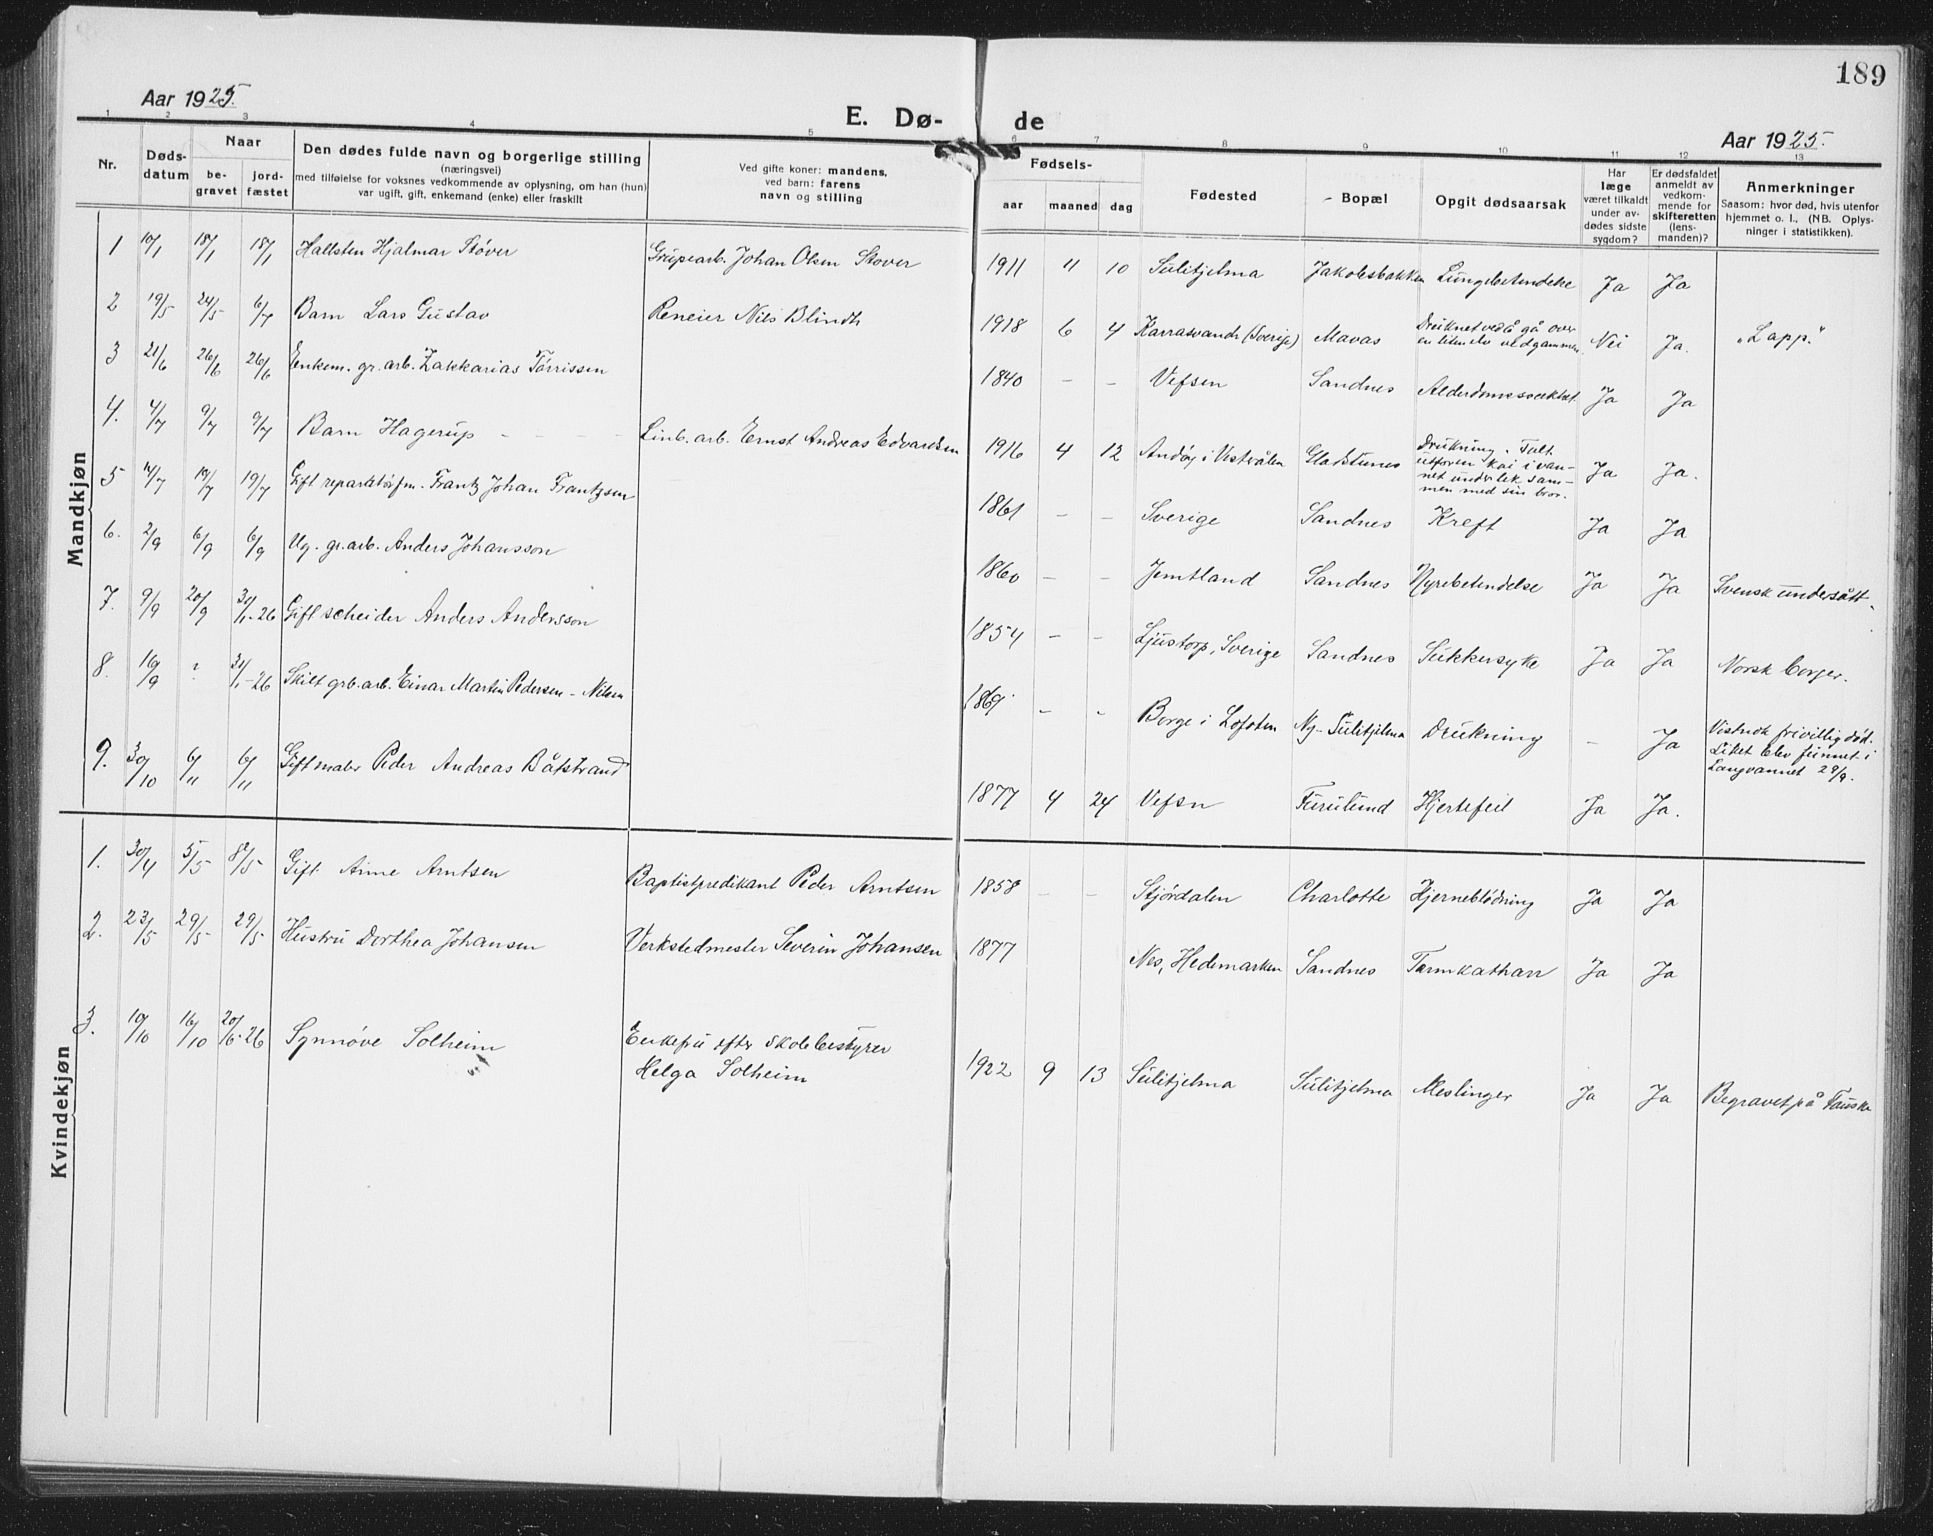 189
Aar 1925.
E. Dø- de
Aar 1925.
1 2 3 4 5 6 7 8 9 10 11 12 13
Nr.
Døds-
datum
Naar
be-
gravet
jord-
fæstet
Den dødes fulde navn og borgerlige stilling
(næringsvei)
med tilføielse for voksnes vedkommende av oplysning, om han (hun)
var ugift, gift, enkemand (enke) eller fraskilt
Ved gifte koner: mandens,
ved barn: farens
navn og stilling
Fødsels-
aar maaned dag
Fødested
Bopæl
Opgit dødsaarsak
Har
læge
været tilkaldt
under av-
dødes sidste
sygdom?
Er dødsfaldet
anmeldt av
vedkom-
mende for
skifteretten
(lens-
manden)?
Anmerkninger
Saasom: hvor død, hvis utenfor
hjemmet o. l., (NB. Oplys-
ninger i statistikken).
Mandkjøn
1 10/1 18/1 18/1 Hallsten Hjalmar Støver Grupearb. Johan Olsen Stover 1911 11 10 Sulitjelma Jakobsbakken Lungebetendelse Ja Ja
2 19/5 24/5 6/7 Barn Lars Gustav Reneier Nils Blindh 1918 6 4 Karrasvandr (Sverige) Mavas Druknet ved å gå over
en liten elv ved gammen. Nei Ja. "Lapp."
3 21/6 26/6 26/6 Enkem. gr. arb. Zakkarias Tørrissen 1840 - - Vefsen Sandnes Alderdomssvekket Ja Ja
4. 4/7 9/7 9/7 Barn Hagerup - - - - Linb. arb. Ernst Andreas Edvardsen 1916 4 12 Andøy i Vestrålen Gladstunes Drukning. Falt
utforen kai i van-
net under lek sam-
men med sin bror. Ja Ja.
5 14/7 19/7 19/7 Gift reparatørfm. Frantz Johan Frantzsen 1861 - - Sverige Sandnes Kreft Ja Ja
6. 2/9 6/9 6/9 Ug. gr. arb. Anders Johansson 1860 - - Jemtland Sandnes Nyrebetendelse Ja Ja Svensk undersått.
7. 9/9 20/9 30/1-26 Gift scheider Anders Andersson 1854 - - Ljustorp, Sverige Sandnes Sukkersyke Ja Ja Norsk borger.
8. 16/9 ? 31/1-26 Skilt grb. arb. Einar Martin Pedersen - Nilsen 1869 - - Borge i Lofoten Ny-Sulitjelma Drukning - Ja Vistnok frivillig død.
Liket blev funnet i
Langvannet 28/9.
9. 30/10 6/11 6/11 Gift maler Peder Andreas Båtstrand 1877 4 24 Vefsn Furulund Hjertefeil Ja Ja.
Kvindekjøn
1. 30/4 5/5 8/5 Gift Anne Arntsen Baptistpredikant Peder Arntsen 1858 - - Stjørdalen Charlotte Hjerneblødning Ja Ja
2. 23/5 29/5 29/5 Hustru Dorthea Johansen Verkstedmester Severin Johansen 1877 Nes, Hedemarken Sandnes Tarmkatharr Ja Ja
3. 10/10 16/10 20/6-26 Synnøve Solheim Enkefru efter skolebestyrer
Helga Solheim 1922 9 13 Sulitjelma Sulitjelma Meslinger Ja Ja Begravet på Fauske